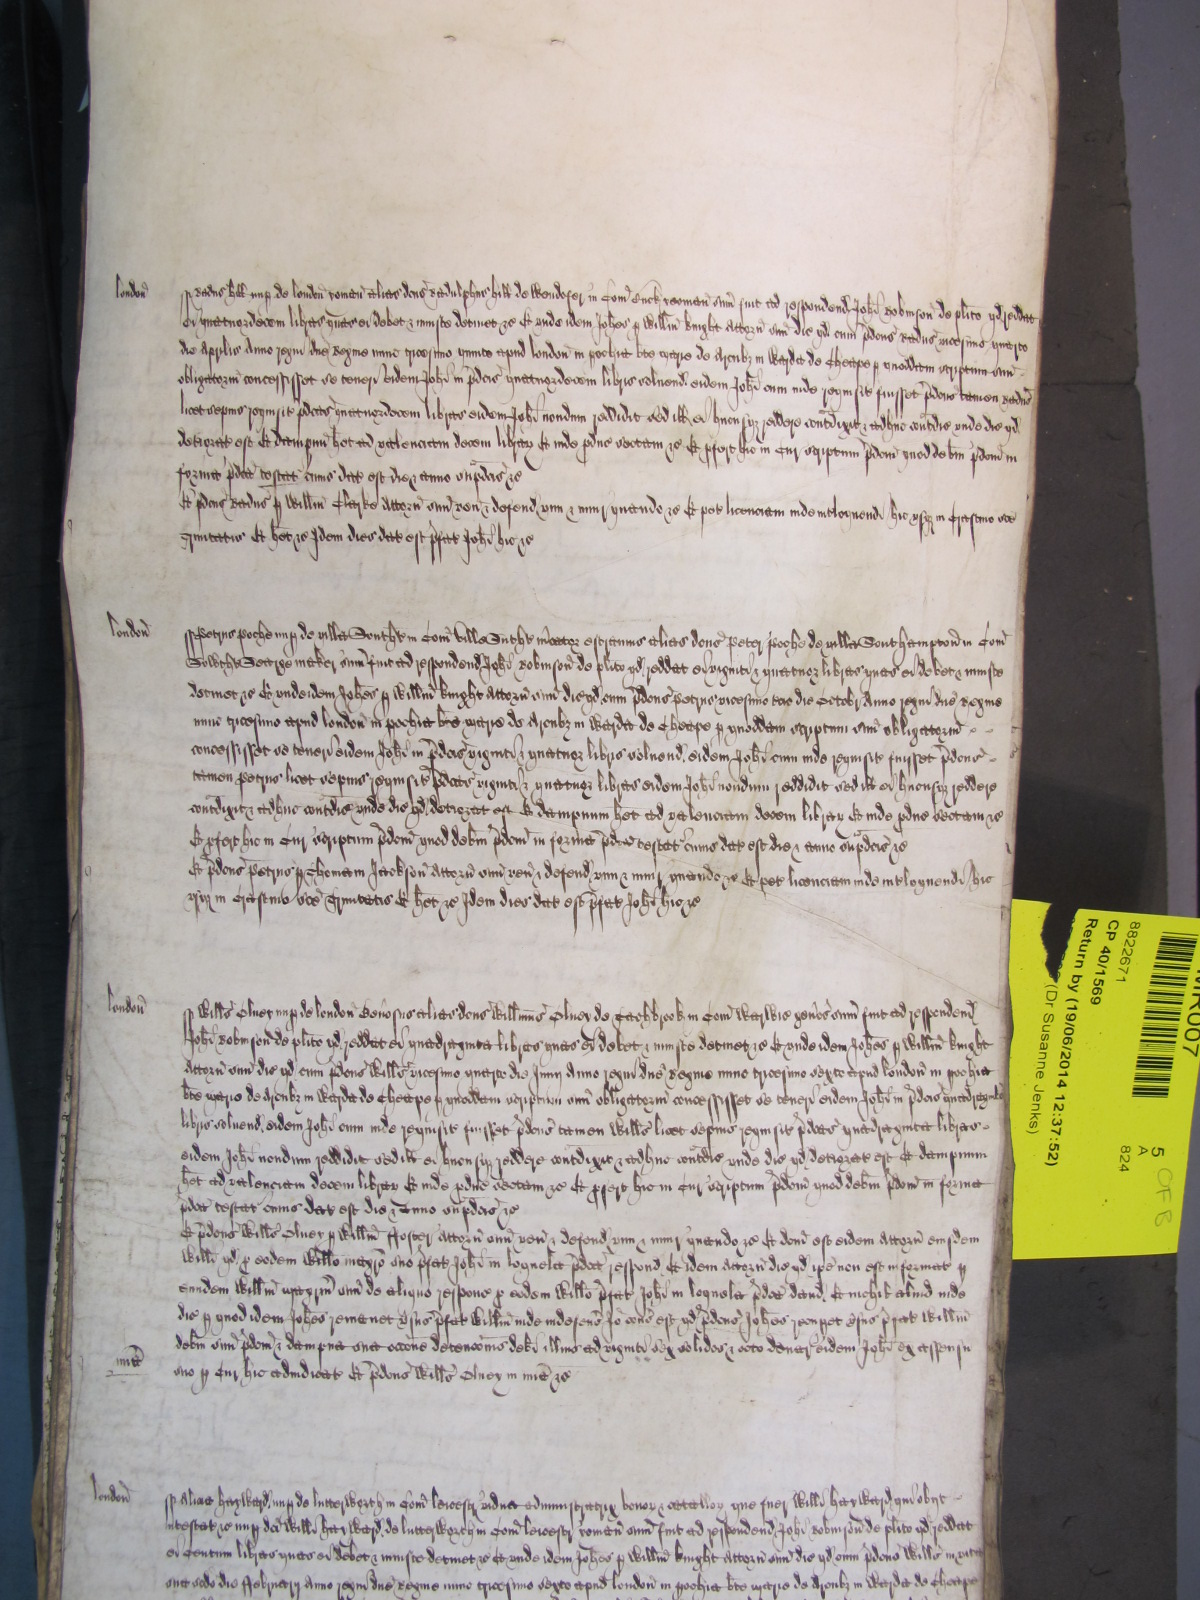 london̄ Radus Hill nup de london̄ yoman alias dc̄us Radulphus Hill de Wendover in Com̄ Buck yoman sum̄ fuit ad respondend Joh̄i Robinson de pl̄ito qd reddat
ei quatuordecem libras quas ei debet & iniuste detinet &c Et unde idem Joh̄es p Willm̄ Knight attorn̄ suū dic̄ qd cum p̄dc̄us Radus vicesimo quarto
die Aprilis Anno regni dn̄e Regine nunc tricesimo quinto apud london̄ in pochia bt̄e Marie de Arcubz in Warda de Cheape p quoddam scriptum suū
obligatoriū concessisset se teneri eidem Joh̄i in p̄dcis quatuordecem libris solvend eidem Joh̄i cum inde requisit fuisset p̄dc̄us tamen Radus
licet sepius requisit p̄dcas quatuordecem libras eidem Joh̄i nondum reddidit sed ill ei hucusqz reddere contradixit & adhuc contradic̄ unde dic̄ qd
deteriorat est Et dampnū h̄et ad valenciam decem librar Et inde pduc̄ sectam &c Et pfert hic in Cur scriptum p̄dcm̄ quod debm̄ p̄dcm̄ in
forma p̄dca testat cuius dat est die & anno sup̄dcis &c
Et p̄dc̄us Radus p Willm̄ Clerke attorn̄ suū ven̄ & defend vim & iniur quando &c Et pet licenciam inde intloquendi hic usqz in Crastino sc̄e
Trinitatis Et h̄et &c Idem dies dat est p̄fat Joh̄i hic &c
london̄ Petrus Poche nup de villa Southt in Com̄ ville Sutht m̄cator extraneus alias dc̄us Peter Poche de villa Southampton̄ in Com̄
Sowtht Searge maker sum̄ fuit ad respondend Joh̄i Robinson̄ de pl̄ito qd reddat ei viginti & quatuor libras quas ei debet & iniuste
detinet &c Et unde idem Joh̄es p Willm̄ Knight attorn̄ suū dic̄ qd cum p̄dc̄us Petrus vicesimo die Octobr Anno regni dn̄e Regine
nunc tricesimo apud london̄ in pochia bt̄e Marie de Arcubz in Warda de Cheape p quoddam scriptum suū obligatoriū
concessisset se teneri eidem Joh̄i in p̄dcis viginti & quatuor libris solvend eidem Joh̄i cum inde requisit fuisset p̄dc̄us
tamen Petrus licet sepius requisit p̄dcas viginti & quatuor libras eidem Joh̄i nondum reddidit sed ill ei hucusqz reddere
contradixit & adhuc contradic̄ unde dic̄ qd deteriorat est Et dampnum h̄et ad valenciam decem librar Et inde pduc̄ sectam &c
Et pfert hic in Cur scriptum p̄dcm̄ quod debm̄ p̄dcm̄ in forma p̄dca testat cuius dat est die & anno sup̄dcis &c
Et p̄dc̄us Petrus p Thomam Jackson̄ attorn̄ suū ven̄ & defend vim & iniur quando &c Et pet licenciam inde intloquendi hic
usqz in Crastino sc̄e Trinitatis Et h̄et &c Idem dies dat est p̄fat Joh̄i hic &c
london̄ Willūs Olney nup de london̄ Generosus alias dc̄us Willmūs Olney de Tachbrook in Com̄ Warwic gen̄os sum̄ fuit ad respondend
Joh̄i Robinson̄ de pl̄ito qd reddat ei quadraginta libras quas ei debet & iniuste detinet &c Et unde idem Joh̄es p Willm̄ Knight
attorn̄ suū dic̄ qd cum p̄dc̄us Willūs vicesimo quarto die Junij Anno regni dn̄e Regine nunc tricesimo sexto apud london̄ in pochia
bt̄e Marie de Arcubz in Warda de Cheape p quoddam scriptum suū obligatoriū concessisset se teneri eidem Joh̄i in p̄dcis quadraginta
libris solvend eidem Joh̄i cum inde requisit fuisset p̄dc̄us tamen Willūs licet sepius requisit p̄dcas quadraginta libras
eidem Joh̄i nondum reddidit sed ill ei hucusqz reddere contradixit & adhuc contradic̄ unde dic̄ qd deteriorat est Et dampnum
h̄et ad valenciam decem librar Et inde pduc̄ sectam &c Et pfert hic in Cur scriptum p̄dcm̄ quod debm̄ p̄dcm̄ in forma
p̄dca testat cuius dat est die & Anno sup̄dcis &c
Et p̄dc̄us Willūs Olney p Willm̄ Foster attorn̄ suū ven̄ & defend vim & iniur quando &c Et dcm̄ est eidem attorn̄ eiusdem
Willi qd p eodem Willo magrō suo p̄fat Joh̄i in loquela p̄dca respond Et idem attorn̄ dic̄ qd ip̄e non est informat p
eundem Willm̄ magrm̄ suū de aliquo respons p eodem Willo p̄fat Joh̄i in loquela p̄dca dand Et nichil aliud inde
dic̄ p quod idem Joh̄es remanet vsus p̄fat Willm̄ inde indefens̄ Io cons̄ est qd p̄dc̄us Joh̄es recupet vsus p̄fat Willm̄
debm̄ suū p̄dcm̄ & dampna sua occōne detencōnis debi illius ad viginti sex solidos & octo denar eidem Joh̄i ex assensu
mīa suo p Cur hic adiudicat Et p̄dc̄us Willūs Olney in mīa &c
london̄ Alicia Hayward nup de lutterworth in Com̄ leicestr vidua administratrix bonor & catallor que fuer Willi Hayward qui obijt
intestat &c nup dci Willi Hayward de lutterworth in Com̄ leicestr yoman̄ sum̄ fuit ad respondend Joh̄i Robinson̄ de pl̄ito qd reddat
ei Centum libras quas ei debet & iniuste detinet &c Et unde idem Joh̄es p Willm̄ Knight attorn̄ suū dic̄ qd cum p̄dc̄us Willūs in vita
sua scdo die Februarij Anno regni dn̄e Regine nunc tricesimo sexto apud london̄ in pochia bt̄e Marie de Arcubz in Warda de Cheape
8822671
CP 40/1569
Return by (19/06/2014 12:37:52)
(Dr Susanne Jenks)
5 OF 8
A
824